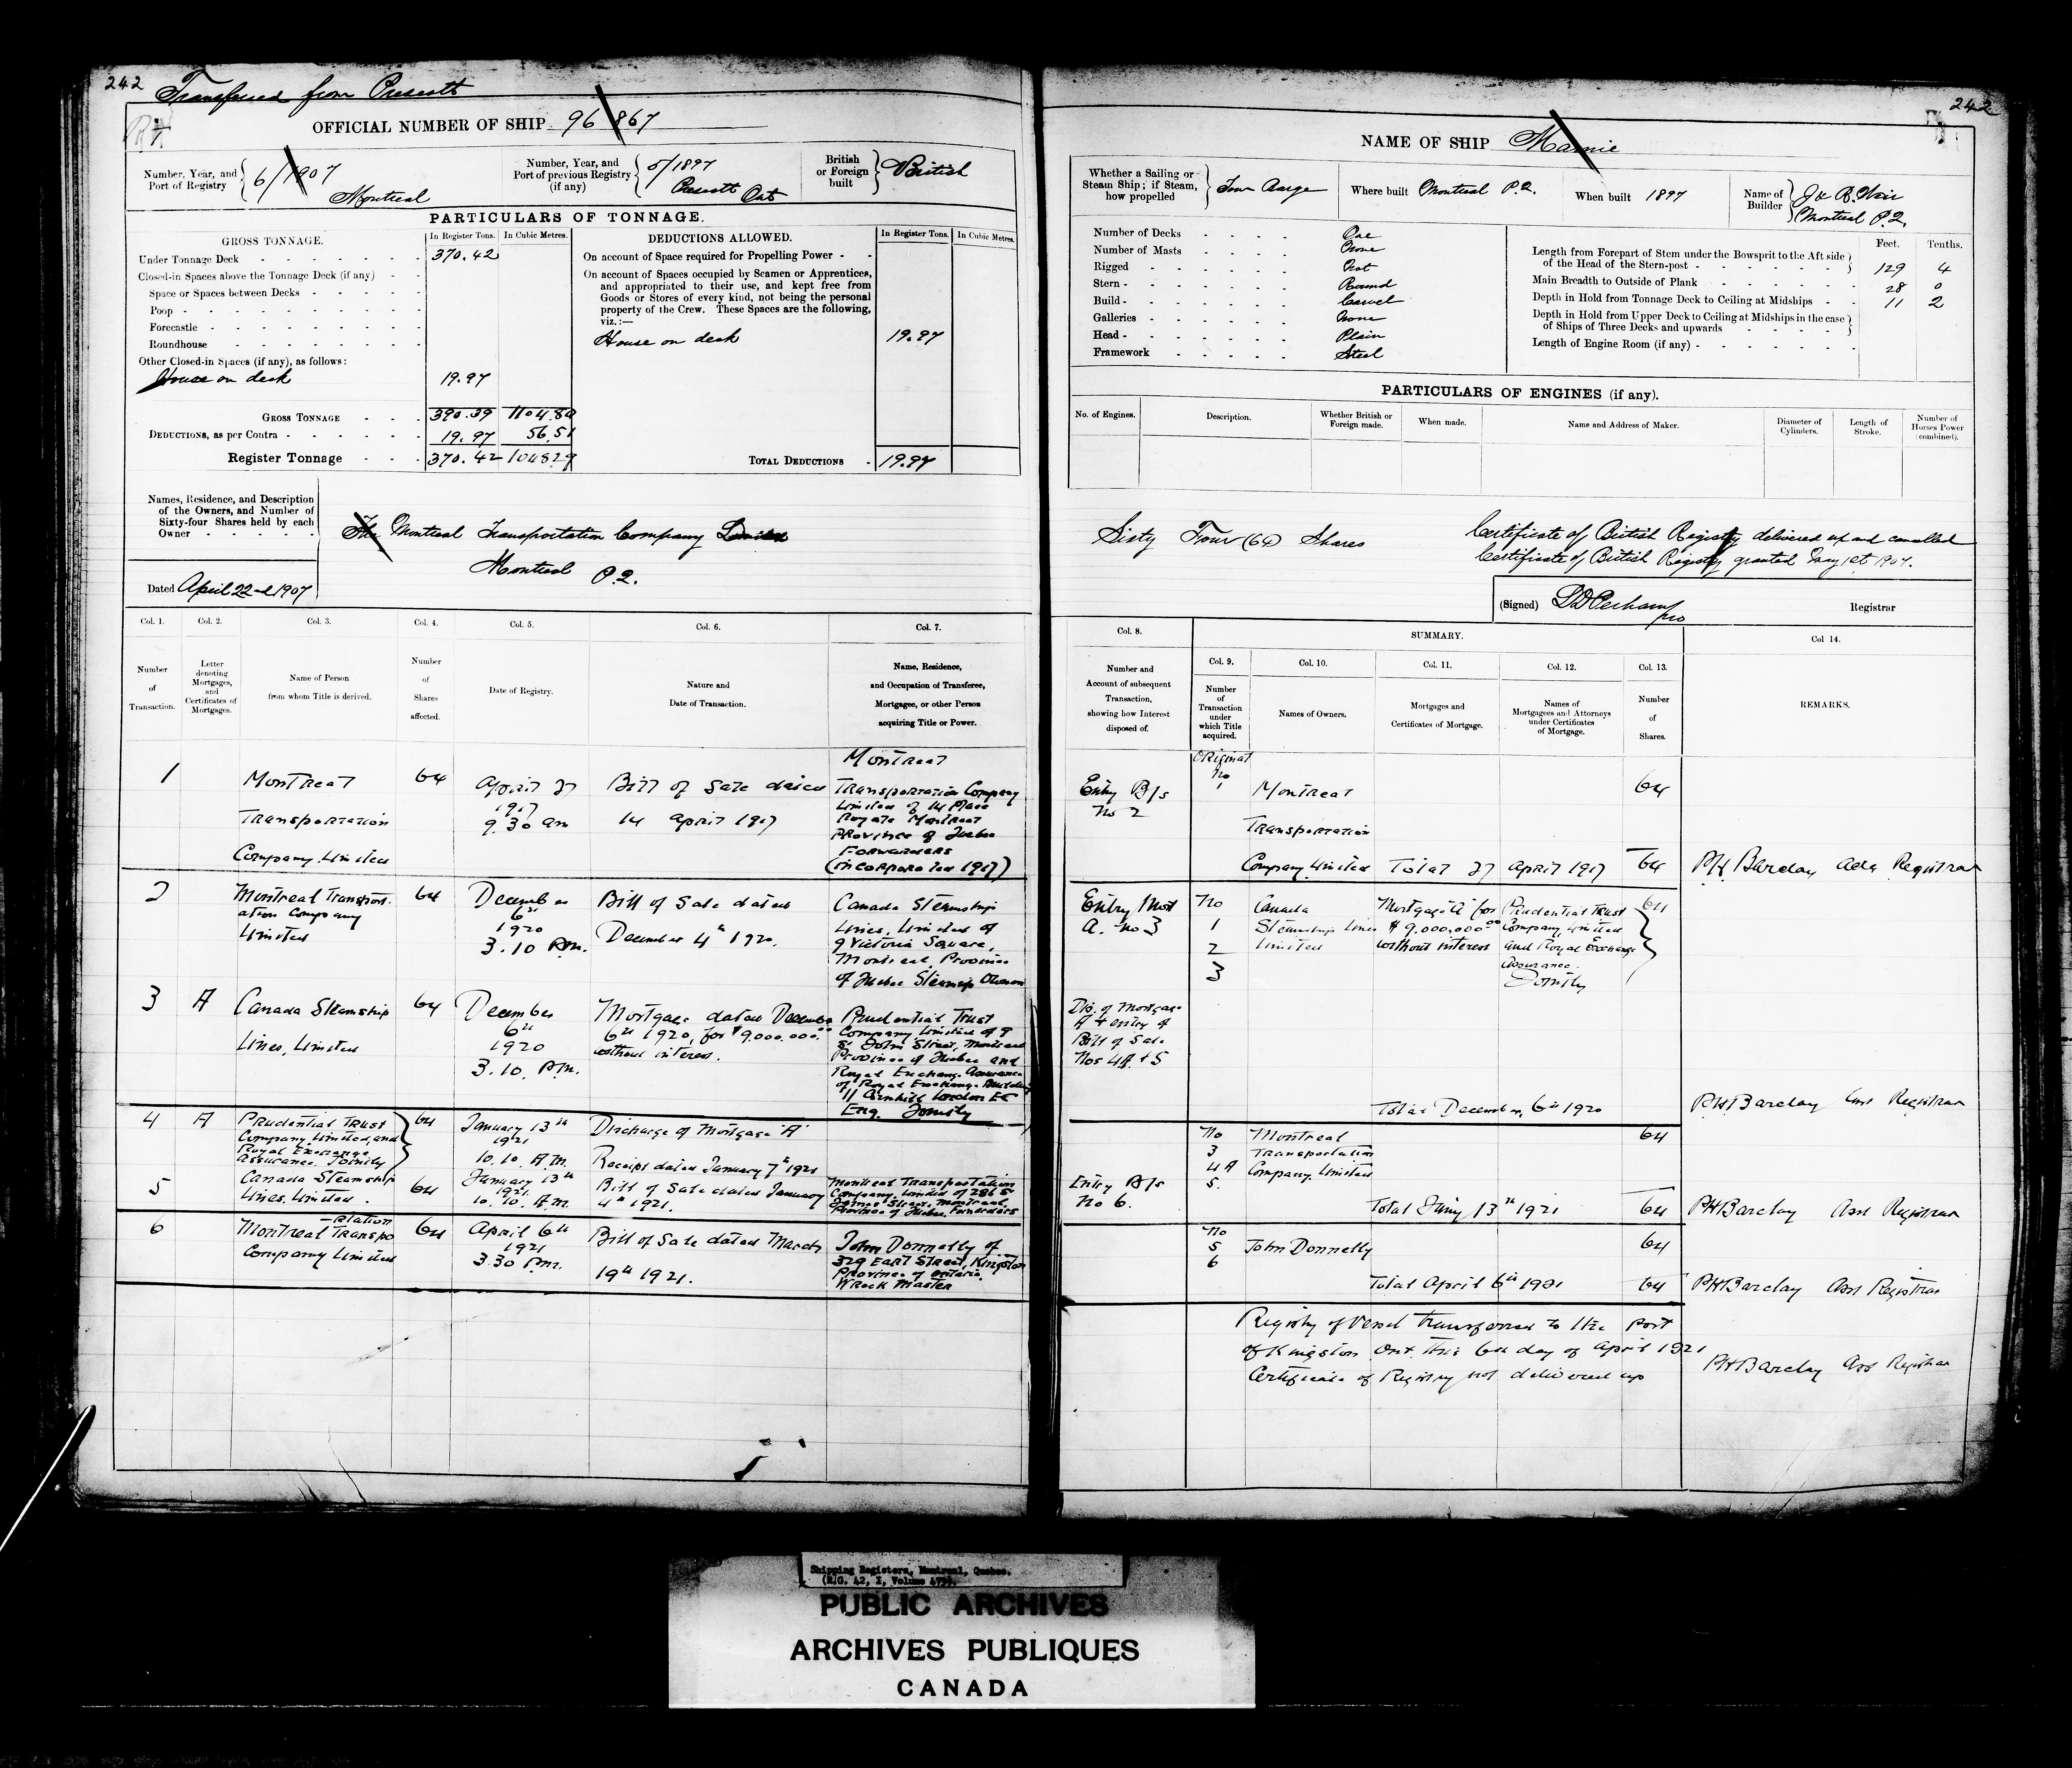 242
Transferred from Prescott
OFFICIAL NUMBER OF SHIP 96867
Number, Year, and Port of Registry 6/1907 Montreal
Number, Year, and Port of previous Registry (if any) 5/1897 Prescott Ont
British or Foreign built British
PARTICULARS OF TONNAGE.
GROSS TONNAGE. In Register Tons. In Cubic Metres.
Under Tonnage Deck 370.42
Closed-in Spaces above the Tonnage Deck (if any)
Space or Spaces between Decks
Poop
Forecastle
Roundhouse
Other Closed-in Spaces (if any), as follows:
House on deck 19.97
GROSS TONNAGE 390.39 1104.80
DEDUCTIONS, as per Contra 19.97 56.51
Register Tonnage 370.42 1048.29
DEDUCTIONS ALLOWED. In Register Tons. In Cubic Metres.
On account of Space required for Propelling Power
On account of Spaces occupied by Seamen or Apprentices,
and appropriated to their use, and kept free from
Goods or Stores of every kind, not being the personal
property of the Crew. These Spaces are the following,
viz.:—
House on deck 19.97
TOTAL DEDUCTIONS 19.97
Names, Residence, and Description
of the Owners, and Number of
Sixty-four Shares held by each
Owner
The Montreal Transportation Company Limited
Montreal P.Q.
Dated April 22nd 1907
Col. 1. Col. 2. Col. 3. Col. 4. Col. 5. Col. 6. Col. 7.
Number of Transaction.
Letter denoting Mortgages, and Certificates of Mortgages.
Name of Person from whom Title is derived.
Number of Shares affected.
Date of Registry.
Nature and Date of Transaction.
Name, Residence, and Occupation of Transferee, Mortgagee, or other Person acquiring Title or Power.
1 Montreal Transportation Company Limited
64
April 27 1917 9.30 am
Bill of Sale dated 14 April 1917
Montreal
Transportation Company
Limited of 14 Place
Royale Montreal
Province of Quebec
Forwarders
(incorporated 1917)
2 Montreal Transport-
ation Company
Limited
64
December 6th 1920 3.10 P.M.
Bill of Sale dated
December 4th 1920.
Canada Steamship
Lines, Limited of
9 Victoria Square,
Montreal, Province
of Quebec Steamship Owners
3 A Canada Steamship
Lines, Limited
64
December 6th 1920 3.10. P.M.
Mortgage dated December
6th 1920, for $9,000.000.00
without interest.
Prudential Trust
Company Limited of 9
St John Street, Montreal
Province of Quebec and
Royal Exchange Assurance
of Royal Exchange Building
Cornhill London EC
Eng. Jointly
4 A Prudential Trust
Company Limited, and
Royal Exchange
Assurance. Jointly
64
January 13th 1921 10.10. A.M.
Discharge of Mortgage "A"
Receipt dated January 7th 1921
5 Canada Steamship
Lines, Limited.
64
January 13th 1921. 10.10. A.M.
Bill of Sale dated January
4th 1921.
Montreal Transportation
Company, Limited of 286 St
James Street, Montreal
Province of Quebec. Forwarders
6 Montreal Transpo
rtation
Company Limited
64
April 6th 1921 3.30 P.M.
Bill of Sale dated March
19th 1921.
John Donnelly of
329 East Street, Kingston
Province of Ontario.
Wreck Master
242
NAME OF SHIP Mamie
Whether a Sailing or Steam Ship; if Steam, how propelled Tow Barge
Where built Montreal P.Q.
When built 1897
Name of Builder J & R. Weir Montreal P.Q.
Number of Decks One
Number of Masts None
Rigged Not
Stern Round
Build Carvel
Galleries None
Head Plain
Framework Steel
Feet. Tenths.
Length from Forepart of Stem under the Bowsprit to the Aft side
of the Head of the Stern-post 129 4
Main Breadth to Outside of Plank 28 0
Depth in Hold from Tonnage Deck to Ceiling at Midships 11 2
Depth in Hold from Upper Deck to Ceiling at Midships in the case
of Ships of Three Decks and upwards
Length of Engine Room (if any)
PARTICULARS OF ENGINES (if any).
No. of Engines. Description. Whether British or Foreign made. When made. Name and Address of Maker. Diameter of Cylinders. Length of Stroke. Number of Horses Power (combined).
Sixty Four (64) Shares
Certificate of British Registry delivered up and cancelled
Certificate of British Registry granted May 1st 1907.
(Signed) Registrar
Col. 8. SUMMARY. Col 14.
Col. 9. Col. 10. Col. 11. Col. 12. Col. 13.
Number and Account of subsequent Transaction, showing how Interest disposed of.
Number of Transaction under which Title acquired.
Names of Owners.
Mortgages and Certificates of Mortgage.
Names of Mortgagees and Attorneys under Certificates of Mortgage.
Number of Shares.
REMARKS.
Entry B/s
No 2
Original
No
1
Montreal
Transportation
Company Limited
64
Total 27 April 1917 64 PH Barclay Registrar
Entry Mort
A. No 3
No
1
2
3
Canada
Steamship Lines
Limited
Mortgage "A" for
$9,000,000.00
without interest
Prudential Trust
Company, Limited
and Royal Exchange
Assurance.
Jointly
64
Dis. of Mortgage
A & entry of
Bill of Sale
Nos 4A & 5
Total December 6th 1920 PH Barclay Asst Registrar
No
3
4A
5.
Montreal
Transportation
Company, Limited
64
Entry B/s
No 6.
Total 13th 1921 64 PH Barclay Asst Registrar
No
5
6
John Donnelly 64
Total April 6th 1921 64 PH Barclay Asst Registrar
Registry of Vessel transferred to the Port
of Kingston Ont. this 6th day of April 1921
Certificate of Registry not delivered up
PH Barclay Asst Registrar
Shipping Registers, Montreal, Quebec.
PUBLIC ARCHIVES
ARCHIVES PUBLIQUES
CANADA